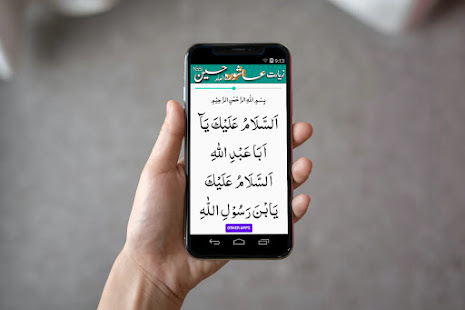 9:23
زیارت عاشورہ امام حسین
بِسْمِ اللهِ الرَّحْمٰنِ الرَّحِيْمِ
اَلسَّلَامُ عَلَيْكَ يَآ
اَبَا عَبْدِ اللهِ
اَلسَّلَامُ عَلَيْكَ
يَابْنَ رَسُوْلِ اللهِ
OTHER APPS